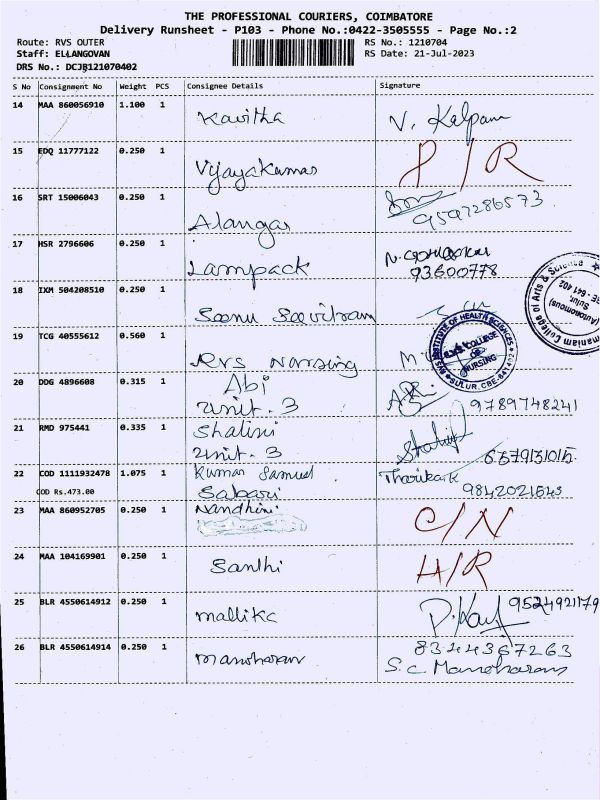 THE PROFESSIONAL COURIERS, COIMBATORE
Delivery Runsheet - P103 - Phone No.:0422-3505555 - Page No.:2
Route: RVS OUTER
RS No.: 1210704
Staff: ELLANGOVAN
RS Date: 21-Jul-2023
DRS No.: DCJB121070402
S No Consignment No Weight PCS Consignee Details Signature
14 MAA 860056910 1.100 1 Kavitha V. Kalpana
15 EDQ 11777122 0.250 1 Vijayakumar P/R
16 SRT 15006043 0.250 1 Alangar 9597286573
17 HSR 2796606 0.250 1 Lampack 93600778
18 IXM 504208510 0.250 1 Soonu Soovitram
19 TCG 40555612 0.560 1 RVS Nursing
RVS INSTITUTE OF HEALTH SCIENCES
COLLEGE
NURSING
SULUR, CBE-641 402
College of Arts & Science
(Autonomous)
Sulur,
641 402
20 DDG 4896608 0.315 1 Abi
unit. 3 9789748241
21 RMD 975441 0.335 1 Shalini
unit. 3
22 COD 1111932478 1.075 1 Kumar Samuel
COD Rs.473.00 Sabari 9842021543
23 MAA 860952705 0.250 1 Nandhini C/N
24 MAA 104169901 0.250 1 Santhi H/R
25 BLR 4550614912 0.250 1 mallika 9524921179
26 BLR 4550614914 0.250 1 manoharan 8344367263
S.C Manoharan